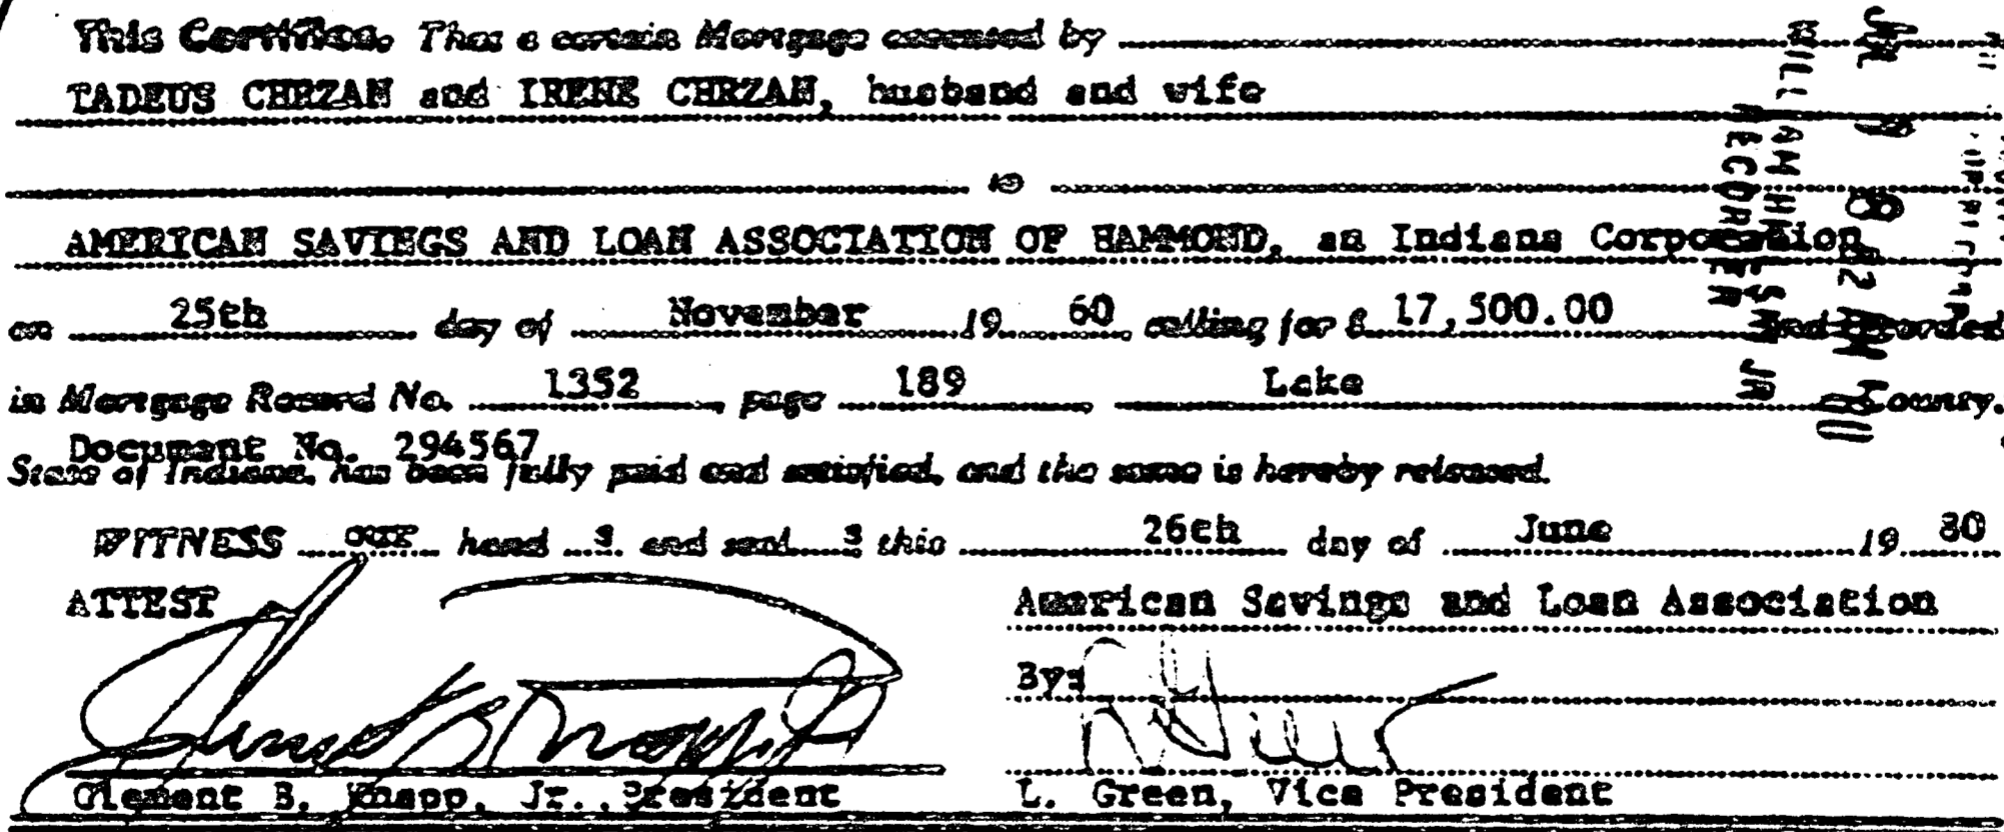 This Certifies, That a certain Mortgage executed by
TADEUS CHRZAN and IRENE CHRZAN, husband and wife
to
AMERICAN SAVINGS AND LOAN ASSOCIATION OF HAMMOND, an Indiana Corporation
on 25th day of November 19 60 calling for $ 17,500.00 and recorded
in Mortgage Record No. 1352 page 189 Lake County,
Document No. 294567
State of Indiana, has been fully paid and satisfied, and the same is hereby released.
WITNESS our hand s and seal s this 26th day of June 19 80
ATTEST
American Savings and Loan Association
By:
Clement B. Knapp, Jr., President
L. Green, Vice President
WILLIAM
RECORDER